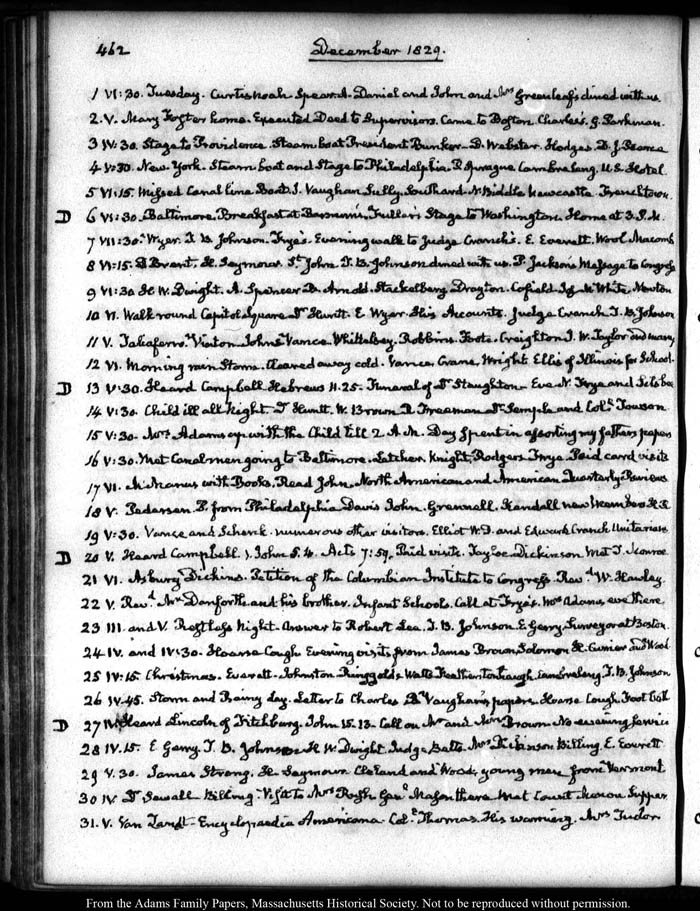 462 December 1829.
1 VI:30. Tuesday. Curtis Noah Spear A. Daniel and John and Mrs Greenleafs dined with us
2. V. Mary Foster home. Executed Deed to Supervisors. Came to Boston. Charles. G. Parkman.
3 IV:30. Stage to Providence. Steam boat President Bunker. D. Webster. Hodges. D. J. Pearce
4 V:30. New York. Steam boat and Stage to Philadelphia P. Sprague Cambreleng. U.S. Hotel.
5 VI:15. Missed Canal line Boat. J. Vaughan Sully. Southard. N. Biddle Newcastle. Frenchtown.
D 6 VI:30. Baltimore. Breakfast at Barnum's, Fuller's Stage to Washington. Home at 3. P.M.
7 VII:30. Wyer. T. B. Johnson. Frye's. Evening walk to Judge Cranch's. E. Everett. Wool. Macomb
8 VI:15. D Brent. H. Seymour. St John. T. B. Johnson dined with us. P. Jackson's Message to Congress
9 VI:30 H. W. Dwight. A. Spencer D. Arnold. Stackelberg. Drayton. Cofield. White. Newton
10 VI. Walk round Capitol Square Dr Huntt. E. Wyer. His Accounts. Judge Cranch T. B. Johnson
11 V. Taliaferro. Vinton Johns Vance. Whittelsey. Robbins. Foote. Creighton J. W. Taylor and many
12 VI. Morning rain Storm. Cleared away cold. Vance. Crane. Wright. Ellis of Illinois for School.
D 13 V:30. Heard Campbell Hebrews 11.25. Funeral of Dr Staughton. Eve N. Frye and
14 V:30. Child ill all Night. Dr Huntt. W. Brown. Freeman Dr Semple and Coll. Towson.
15 V:30. Mrs Adams up with the Child till 2 A.M. Day Spent in assorting my father's papers
16 V:30. Met Canal men going to Baltimore. Letcher. Knight. Rodgers. Frye. Paid card visits
17 VI. McManus with Books. Read John. North American and American Quarterly Reviews
18 V. Pedersen. P. from Philadelphia Davis John. Grennell. Kendall new Members H.R.
19 V:30. Vance and Schenk. numerous other visitors. Elliot W.D. and Edward Cranch Unitarians
D 20 V. Heard Campbell. 1. John 5.4. Acts 7:59. Paid visits. Tayloe. Dickinson. Met J. Monroe
21 VI. Asbury Dickins. Petition of the Columbian Institute to Congress. Revd W. Hawley.
22 V. Revd Mr Danforth and his brother. Infant Schools. Call at Frye's. Mrs Adams, eve there.
23 III. and V. Restless Night. Answer to Robert Lee. T. B. Johnson. E. Gerry, Surveyor at Boston.
24 IV. and IV:30. Hoarse Cough Evening visits from James Brown, Solomon H. Currier and Wood.
25 IV:45. Christmas. Everett. Johnston Ringgold. Watts Featherstonhaugh. Cambreleng. T. B. Johnson
26 IV.45. Storm and Rainy day. Letter to Charles. B Vaughan's papers. Hoarse Cough. Foot
D 27 IV. Heard Lincoln of Fitchburg. John 15.13. Call on Mr and Mrs Brown. No evening service
28 IV.15. E Gerry. T. B. Johnson H. W. Dwight. Judge Balts. Mrs Dickinson Billing. E. Everett
29 V.30. James Strong. H. Seymour. Cleland and Wood, young men from Vermont
30 IV Dr Sewall Billing. Visit to Mrs Rush. Genl Mason there. Met Count Menou. Supper
31. V. Van Zandt. Encyclopaedia Americana. Coll. Thomas. His warning. Mrs Tudor
From the Adams Family Papers, Massachusetts Historical Society. Not to be reproduced without permission.